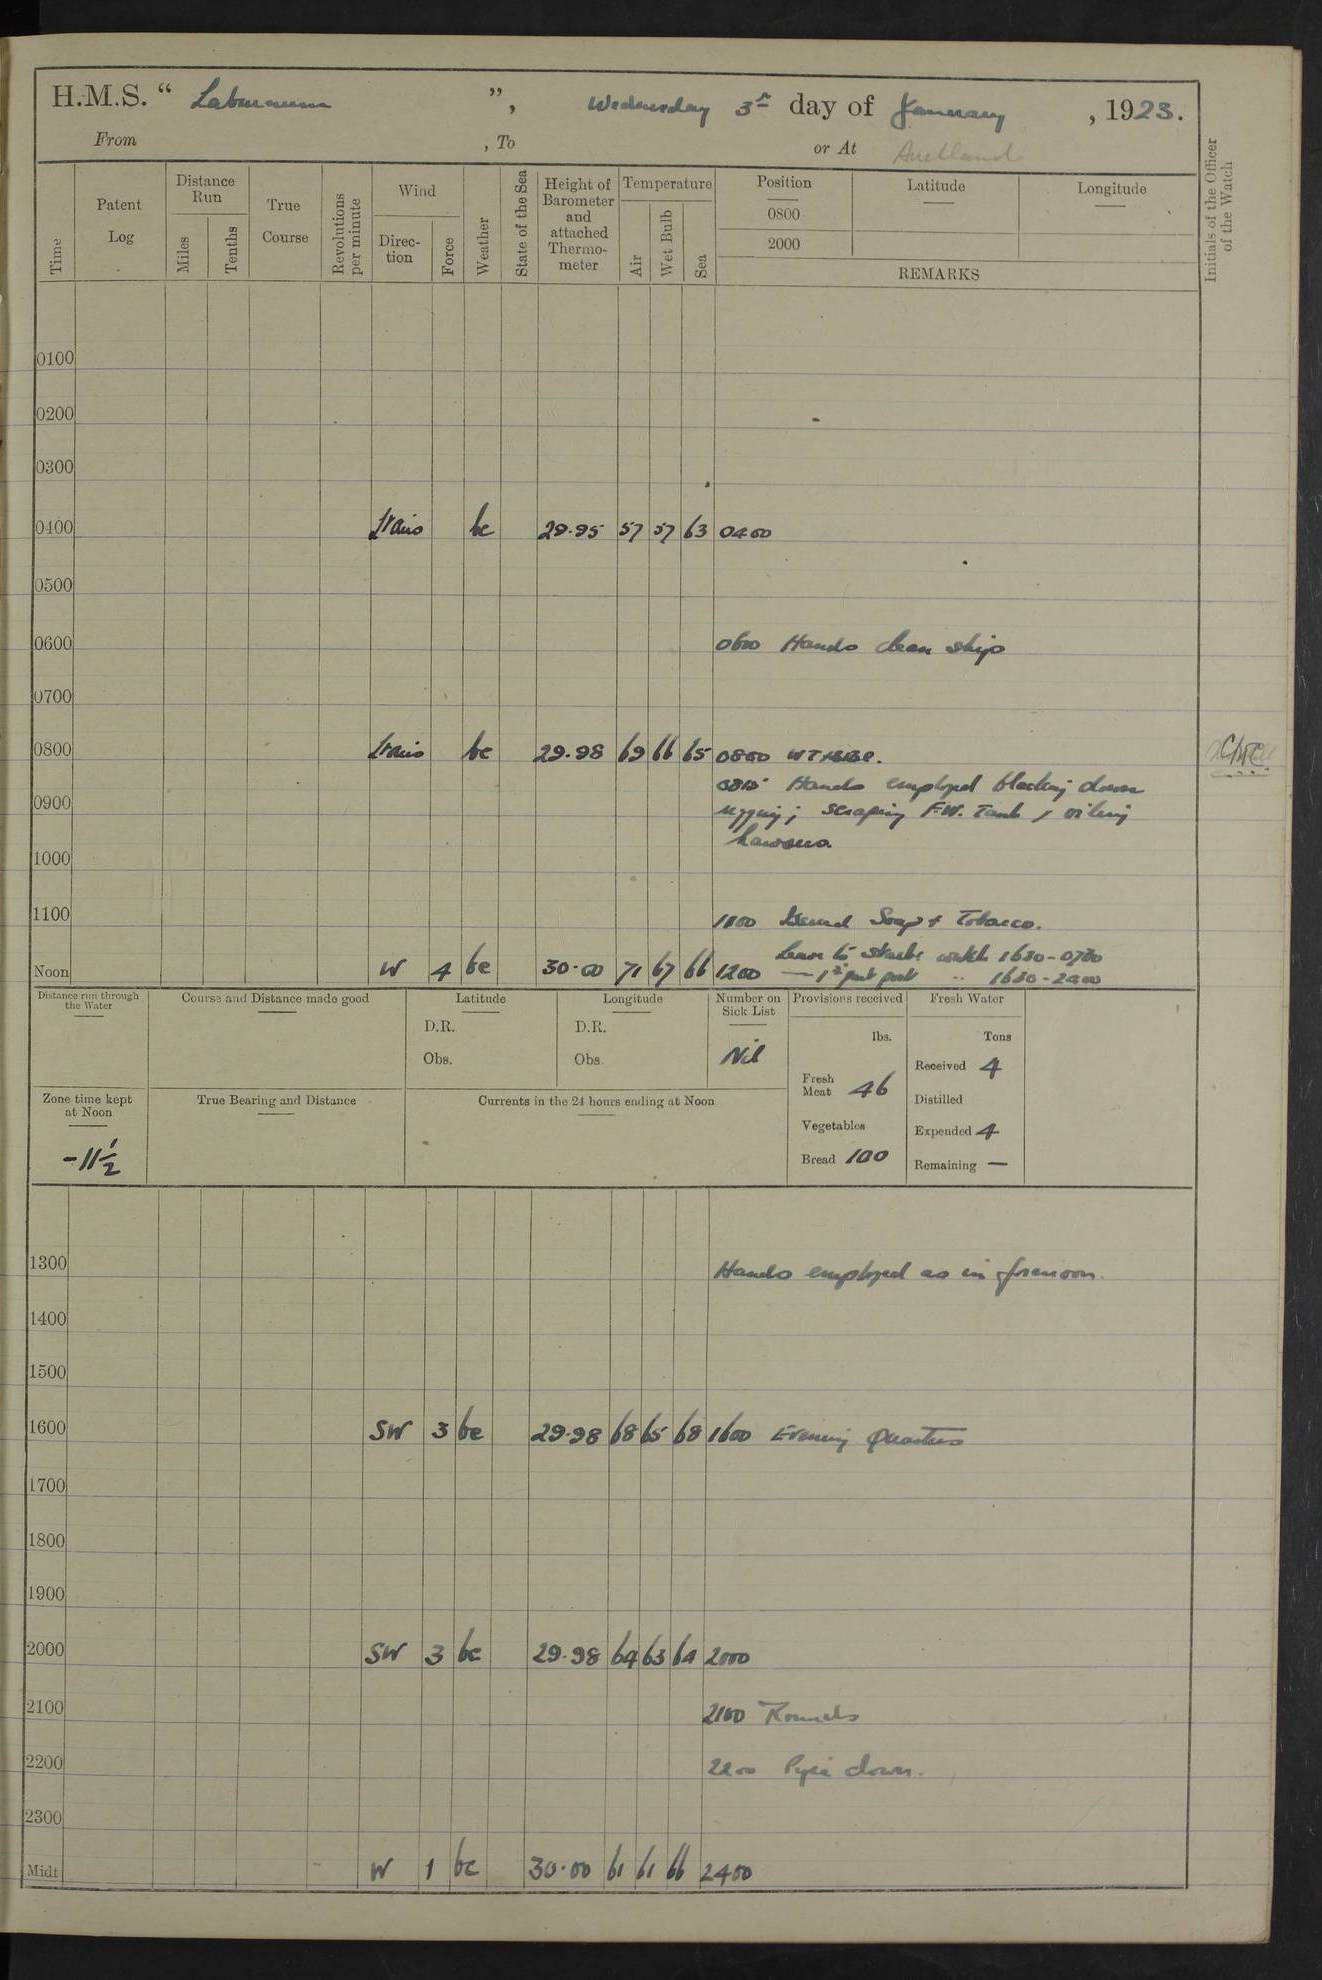 H.M.S. “ Laburnum ”, Wednesday 3rd day of January, 1923.
From , To or At Auckland
Time
Patent Log
Distance Run
Miles
Tenths
True Course
Revolutions per minute
Wind
Direc-tion
Force
Weather
State of the Sea
Height of Barometer and attached Thermo-meter
Temperature
Air
Wet Bulb
Sea
Position
0800
2000
Latitude
Longitude
REMARKS
Initials of the Officer of the Watch
0100
0200
0300
0400 bc 29.95 57 57 63 0400
0500
0600 0600 Hands clean ship
0700
0800 bc 29.98 69 66 65 0800
0815 Hands employed blacking down
0900 rigging; scraping F.W. Tank, oiling
hawsers.
1000
1100 1100 Issued Soap & Tobacco.
Leave to starbd watch 1630-0730
Noon W 4 bc 30.00 71 67 66 1200 — 1st part port " 1630-2400
Distance run through the Water
Course and Distance made good
Latitude
D.R.
Obs.
Longitude
D.R.
Obs.
Number on Sick List
Nil
Provisions received
lbs.
Fresh Meat 46
Vegetables
Bread 100
Fresh Water
Tons
Received 4
Distilled
Expended 4
Remaining —
Zone time kept at Noon
-11½
True Bearing and Distance
Currents in the 24 hours ending at Noon
1300 Hands employed as in forenoon.
1400
1500
1600 SW 3 bc 29.98 68 65 68 1600 Evening Quarters
1700
1800
1900
2000 SW 3 bc 29.98 64 63 64 2000
2100 2100 Rounds
2200 2200 Pipe down.
2300
Midt W 1 bc 30.00 61 61 66 2400